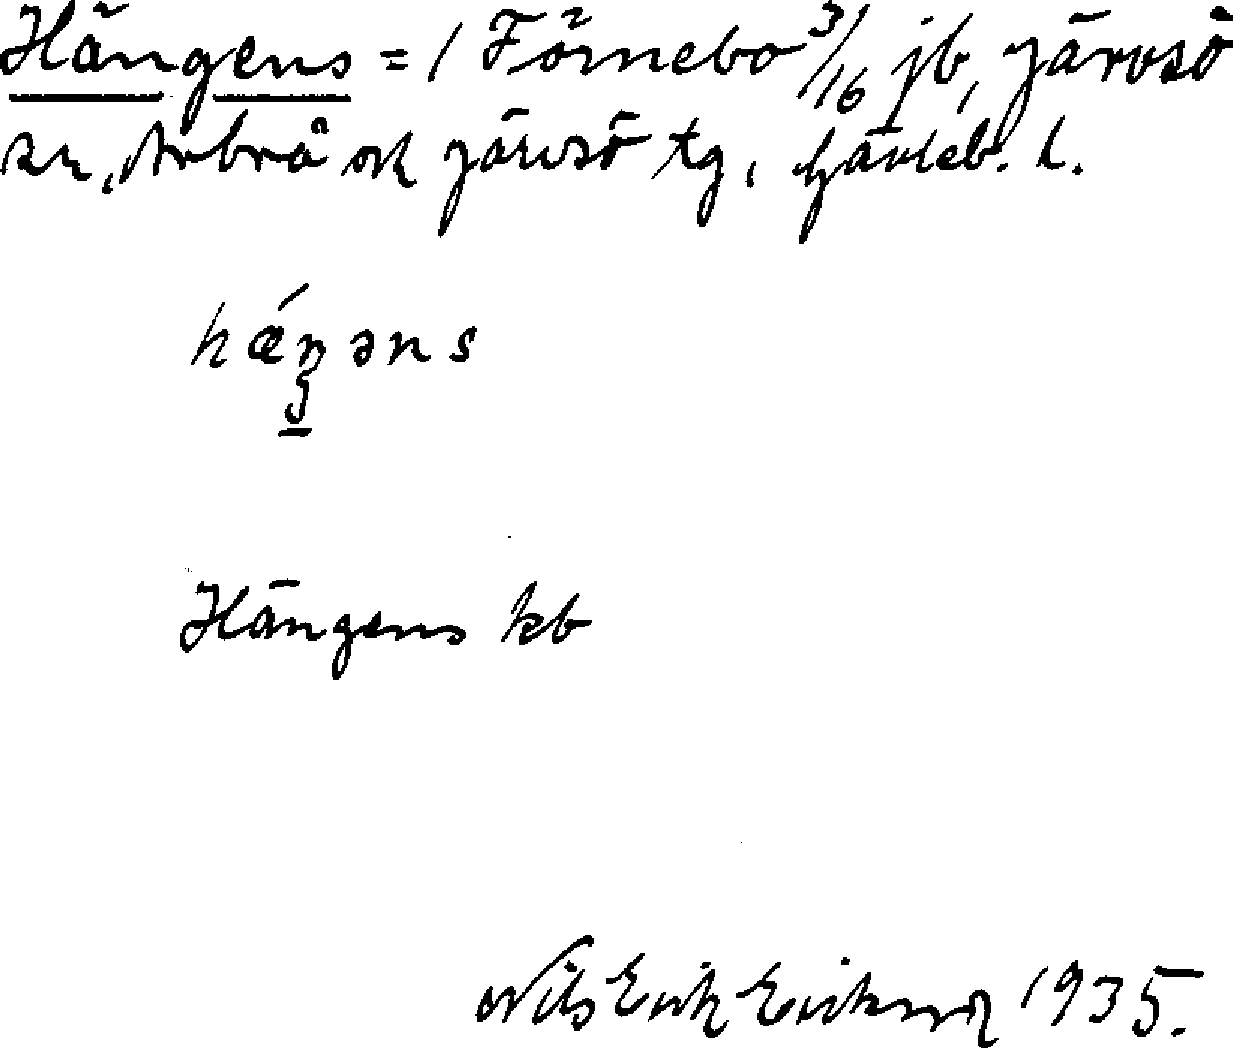 Hängens = 1 Förnebo 3/16 jb, Järvsö
sn, Arbrå och Järvsö tg, Gävleb. l.
hǽŋəns
Hängens kb
Nils Erik Eriksson 1935.